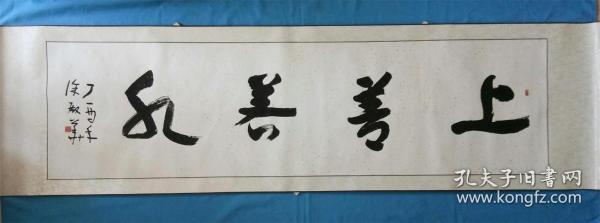 上善若水
丁酉年
徐
孔夫子旧书网
www.kongfz.com